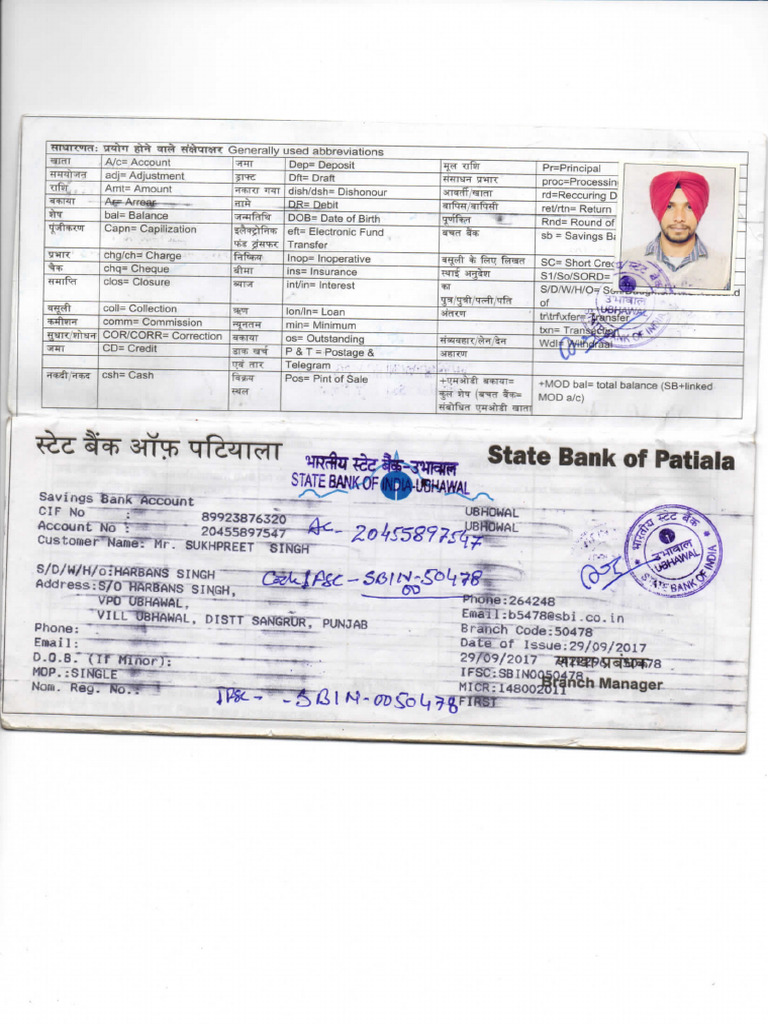 साधारणतः प्रयोग होने वाले संक्षेपाक्षर Generally used abbreviations
खाता A/c= Account जमा Dep= Deposit मूल राशि Pr=Principal
समयोजन adj= Adjustment ड्राफ्ट Dft= Draft संसाधन प्रभार proc=Processin
राशि Amt= Amount नकारा गया dish/dsh= Dishonour आवर्ती/खाता rd=Reccuring D
बकाया Ar= Arrear नामे DR= Debit वापिस/वापिसी ret/rtn= Return
शेष bal= Balance जन्मतिथि DOB= Date of Birth पूर्णांकित Rnd= Round of
पूंजीकरण Capn= Capilization इलैक्ट्रोनिक फंड ट्रंसफर eft= Electronic Fund Transfer बचत बैंक sb = Savings Ba
प्रभार chg/ch= Charge निष्क्रिय Inop= Inoperative वसूली के लिए लिखत SC= Short Cred
चैक chq= Cheque बीमा ins= Insurance स्थाई अनुदेश S1/So/SORD=
समाप्ति clos= Closure ब्याज int/in= Interest का पुत्र/पुत्री/पत्नी/पति S/D/W/H/O= of
वसूली coll= Collection ऋण lon/ln= Loan अंतरण tr\trf\xfer= Transfer
कमीशन comm= Commission न्यूनतम min= Minimum txn= Transaction
सुधार/शोधन COR/CORR= Correction बकाया os= Outstanding संव्यवहार/लेन/देन Wdl= Withdraal
जमा CD= Credit डाक खर्च एवं तार P & T = Postage & Telegram अहारण
नकदी/नकद csh= Cash विक्रय स्थल Pos= Pint of Sale +एमओडी बकाया= कुल शेष (बचत बैंक= संबोधित एमओडी खाता +MOD bal= total balance (SB+linked MOD a/c)
उभावाल
UBHAWAL
STATE BANK OF INDIA
स्टेट बैंक ऑफ़ पटियाला State Bank of Patiala
भारतीय स्टेट बैंक-उभावाल
STATE BANK OF INDIA-UBHAWAL
Savings Bank Account UBHOWAL
CIF No : 89923876320 UBHOWAL
Account No : 20455897547
AC- 20455897547
Customer Name: Mr. SUKHPREET SINGH
भारतीय स्टेट बैंक
उभावाल
UBHAWAL
STATE BANK OF INDIA
S/D/W/H/o:HARBANS SINGH
Code IFSC - SBIN-50478
00
Address:S/O HARBANS SINGH,
VPD UBHAWAL,
VILL UBHAWAL, DISTT SANGRUR, PUNJAB
Phone:
Email:
D.O.B. (If Minor):
MOP.:SINGLE
Nom. Reg. No.:
IFSC- - SBIN-0050478
Phone:264248
Email:b5478@sbi.co.in
Branch Code:50478
Date of Issue:29/09/2017
29/09/2017
शाखा प्रबंधक
IFSC:SBIN0050478
Branch Manager
MICR:148002011
FIRST